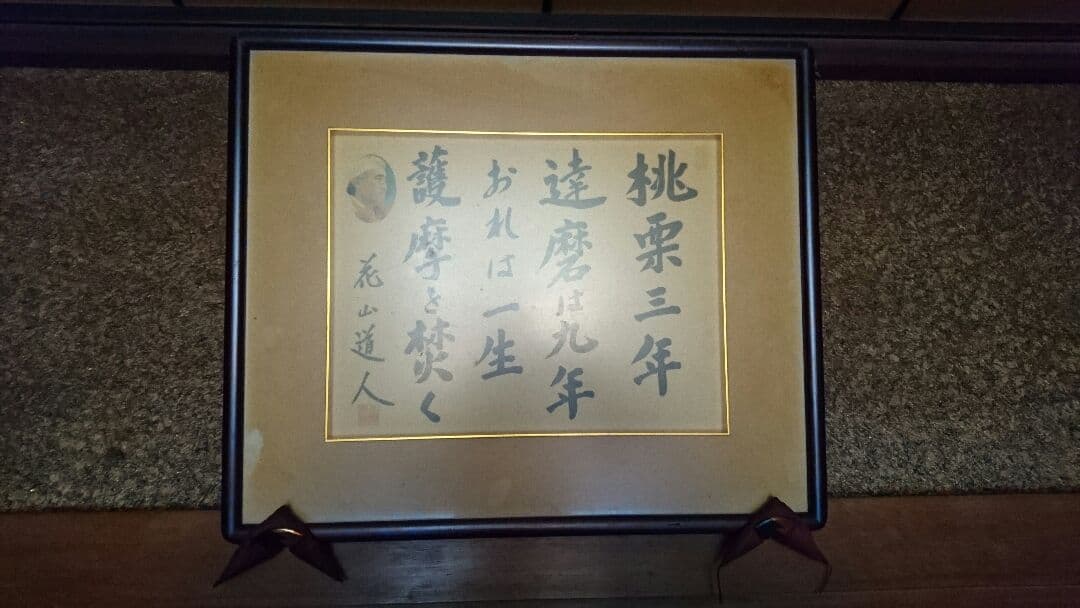 桃栗三年
達磨は九年
おれは一生
護摩を焚く
花山道人